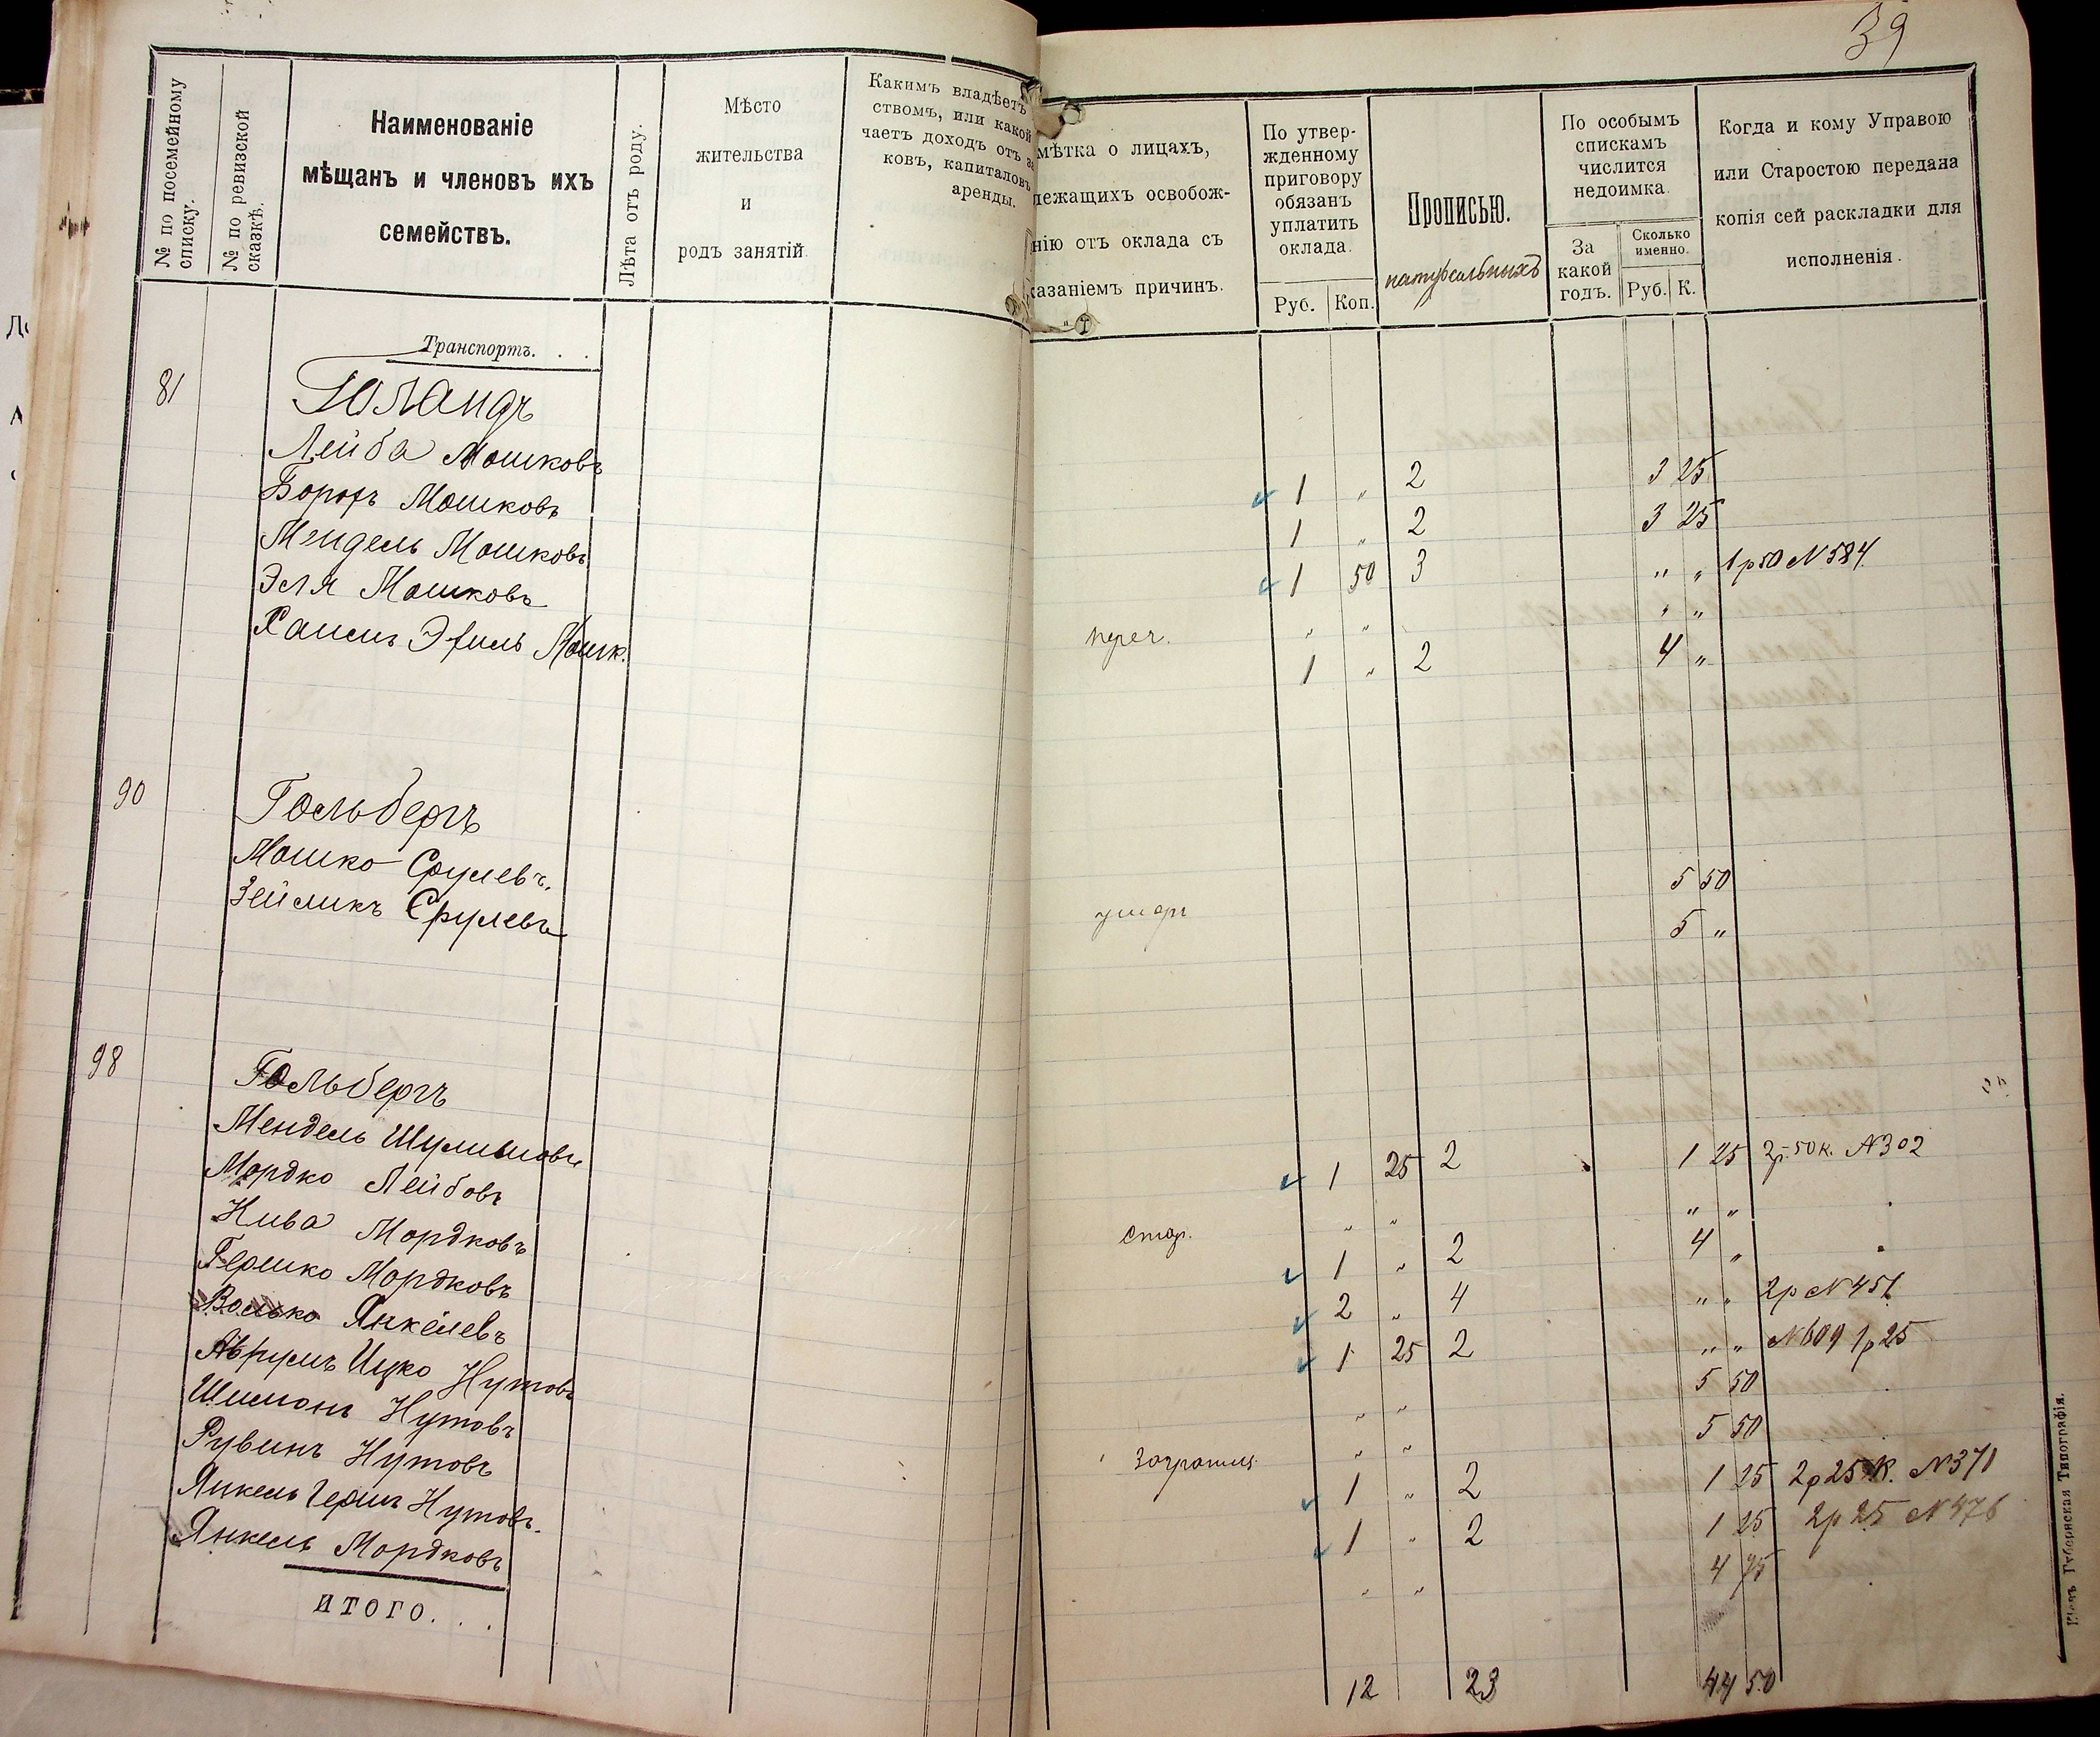 39
№ по посемейному списку.
№ по ревизской сказкѣ.
Наименованіе
мѣщанъ и членовъ ихъ
семействъ.
Лѣта отъ роду.
Мѣсто
жительства
и
родъ занятій
Какимъ владѣетъ
ствомъ, или какой
чаетъ доходъ отъ за
ковъ, капиталовъ
аренды.
мѣтка о лицахъ,
лежащихъ освобож-
нію отъ оклада съ
казаніемъ причинъ.
По утвер-
жденному
приговору
обязанъ
уплатить
оклада.
Руб. Коп.
Прописью.
натуральныхъ
По особымъ
спискамъ
числится
недоимка.
За
какой
годъ.
Сколько
именно.
Руб. К.
Когда и кому Управою
или Старостою передана
копія сей раскладки для
исполненія.
Транспортъ. . .
81 Голандъ
Лейба Мошковъ 1 " 2 3 25
Борохъ Мошковъ 1 " 2 3 25
Мендель Мошковъ 1 50 3 " " 1р50 N584
Эля Мошковъ переч. " " " "
Хаимъ Мошк. 1 " 2 4 "
90 Гольбергъ
Мошко Срулевъ. 5 50
Зейликъ Срулевъ умеръ 5 "
98 Гольбергъ
Мендель Шулимовъ 1 25 2 1 25 2р.50к. N302
Мордко Лейбовъ " " " "
Мордковъ стар. 1 " 2 4 "
Гершко Мордковъ 2 " 4 " " 2р N451
Волько Янкелевъ 1 25 2 " " N609 1р25
Аврумъ Ицко Нутовъ " " 5 50
Шимонъ Нутовъ " " 5 50
Рувинъ Нутовъ заграниц. 1 " 2 1 25 2р25к. N371
Янкель Гершъ Нутовъ. 1 " 2 1 25 2р25 N476
Янкель Мордковъ " " 4 75
ИТОГО. . . 12 23 44 50
Кіевъ Губернская Типографія.